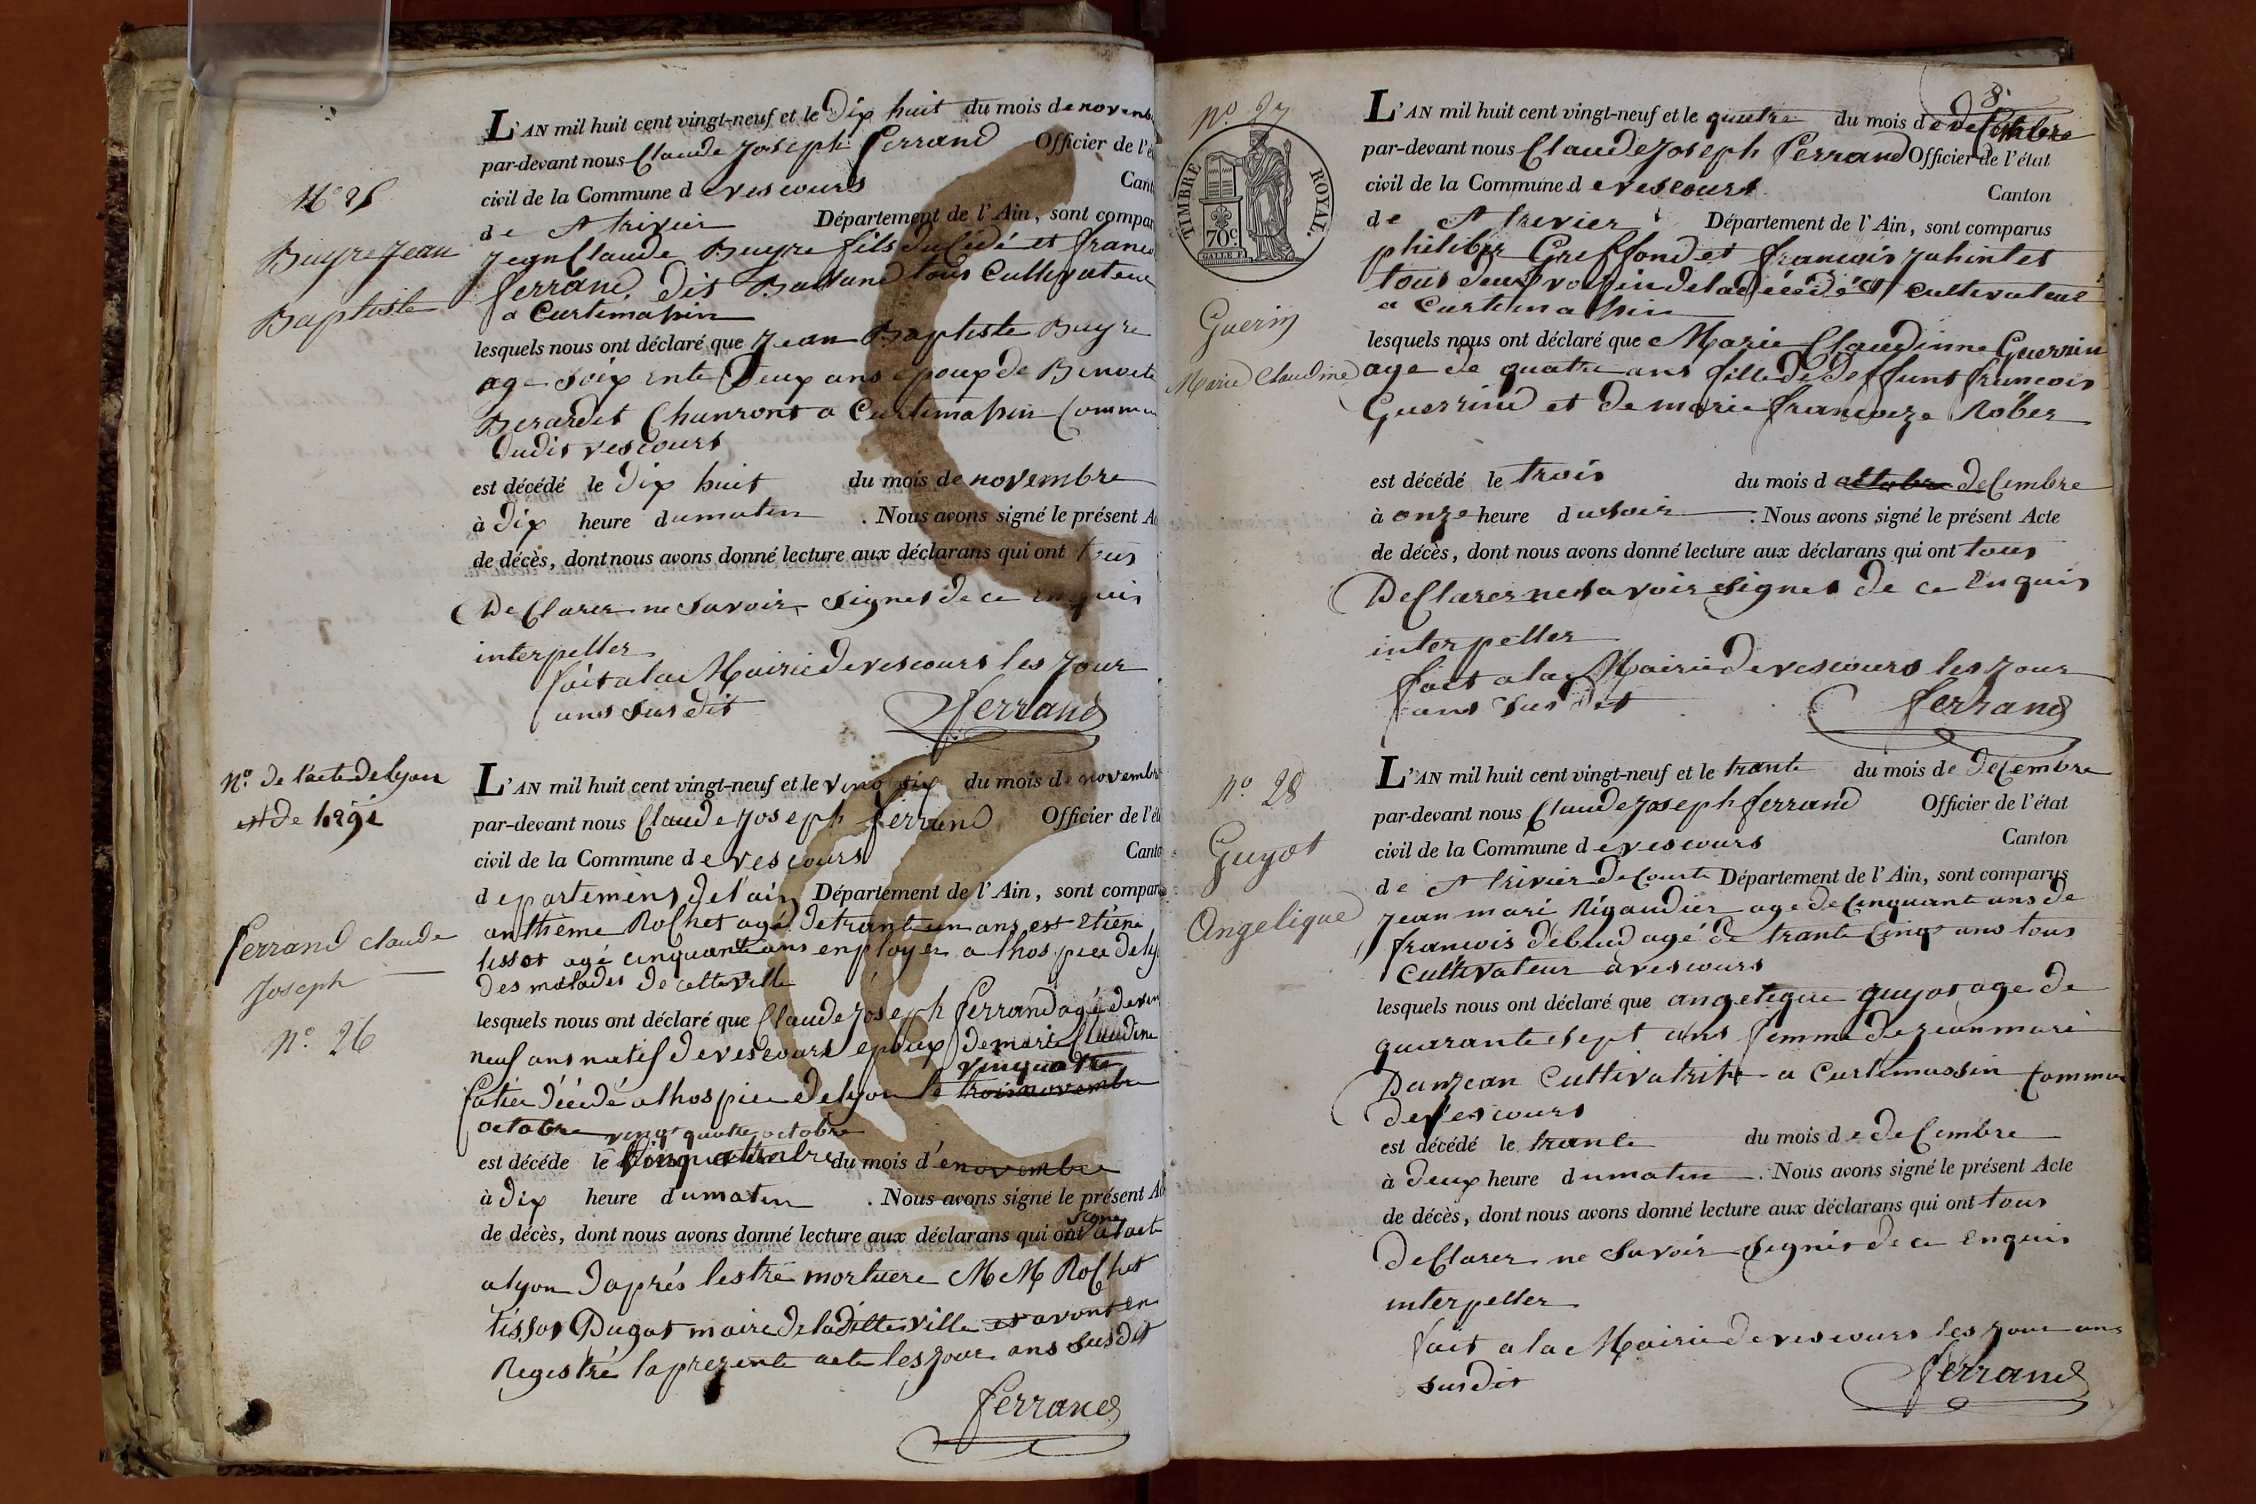 N° 25
Buyre Jean
Baptiste
L'AN mil huit cent vingt-neuf et le Dix huit du mois de novemb
par-devant nous Claude Joseph ferrand Officier de l'é
civil de la Commune d e vescours Cant
de St trivier Département de l'Ain, sont compar
Jean Claude Buyre fils du Cédé et franc
ferrand dit tous Cultivateur
a Curtimassin
lesquels nous ont déclaré que Jean Baptiste Buyre
age soix ente Deux ans epoux de Benoite
Berardet Chanront a Curtimassin Commu
dudit vescours
est décédé le Dix huit du mois de novembre
à Dix heure dumatin . Nous avons signé le présent A
de décès, dont nous avons donné lecture aux déclarans qui ont tous
DeClarer ne savoir signer de ce Enquis
interpeller
fait a la Mairie de vescours les Jour
ans sus dit
ferrand
N° De l'acte de lyon
est de
ferrand claude
Joseph
N° 26
L'AN mil huit cent vingt-neuf et le vint six du mois de novembr
par-devant nous Claude Joseph ferrand Officier de l'é
civil de la Commune d e vescours Canto
departement de l'ain Département de l'Ain, sont compar
anthême Rochet agé de trante un ans est Etiéne
tissot agé cinquante ans employer a lhospice de ly
Des malades de cette ville
lesquels nous ont déclaré que Claude Joseph ferrand agé de vin
neuf ans natif de vescours epoux de marie Claudine
vinquatre
décédé a lhospice de lyon le trois novembre
octobre vingt quatre octobre
est décéde le du mois d'e novembre
à dix heure dumatin . Nous avons signé le présent A
signe
de décès, dont nous avons donné lecture aux déclarans qui ont a l'act
a lyon D'aprés lestre mortuere M M Rochet
tissot Dugas maire de la ditte ville et avont en
Registré la prezente acte les Jour ans susdit
ferrand
8.
N° 27
TIMBRE ROYAL.
70c
Guerin
Marie Claudine
L'AN mil huit cent vingt-neuf et le quatre du mois d e deCembre
par-devant nous Claude Joseph ferrand Officier de l'état
civil de la Commune d e vescours Canton
de St trivier Département de l'Ain, sont comparus
philiber Greffond et francois
tous deux voisin de la décédée et cultivateur
a Curtimassin
lesquels nous ont déclaré que Marie Claudinne Guerrin
age de quatre ans fille de deffunt francois
Guerrind et de marie francoize Rober
est décédé le trois du mois d octobre deCembre
à onze heure dusoir . Nous avons signé le présent Acte
de décès, dont nous avons donné lecture aux déclarans qui ont tous
DeClarer ne savoir signer de ce Enquis
interpeller
fait a la Mairie de vescours les Jour
ans sus dit
ferrand
N° 28
Guyot
Angelique
L'AN mil huit cent vingt-neuf et le trante du mois de deCembre
par-devant nous Claude Joseph ferrand Officier de l'état
civil de la Commune d e vescours Canton
de St trivier de Courte Département de l'Ain, sont comparus
Jean mari Rigaudier age de cinquante ans de
francois debeud agé de trante Cinq ans tous
Cultivateur a vescours
lesquels nous ont déclaré que angelique guyot age de
quarante sept ans femme de Jean mari
Danjean Cultivatrice a Curtimassin Commu
de vescours
est décédé le trante du mois d e deCembre
à deux heure dumatin . Nous avons signé le présent Acte
de décès, dont nous avons donné lecture aux déclarans qui ont tous
DeClarer ne savoir signer de ce Enquis
interpeller
fait a la Mairie de vescours les Jour ans
susdit
ferrand